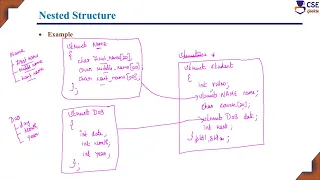 Nested Structure
CSE
Guide
• Example
Name
First name
Middle name
Last name
struct Name
{
char first_name[20];
char middle_name[20];
char last_name[20];
};
DoB
day
Month
year
struct DoB
{
int date;
int month;
int year;
};
struct Student
{
int rollno;
struct NAME name;
char course[20];
struct DoB date;
int
}